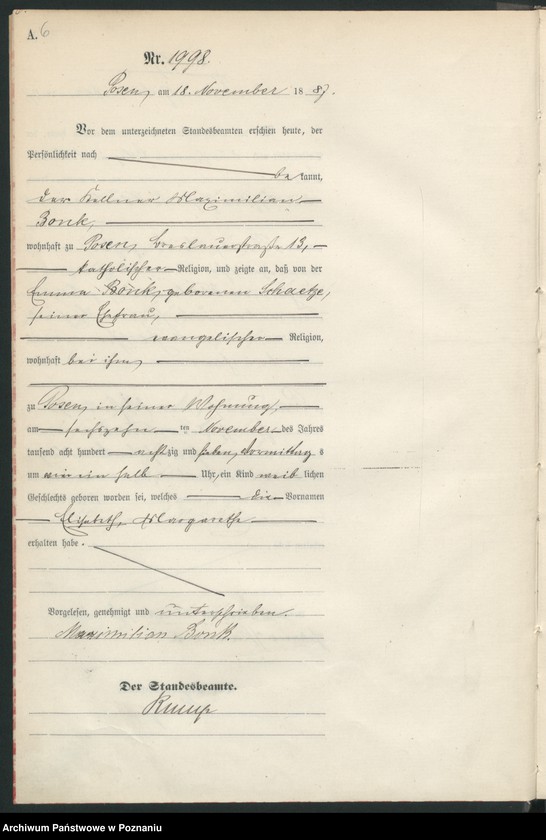 A. 6
Nr. 1998.
Posen, am 18. November 1887.
Vor dem unterzeichneten Standesbeamten erschien heute, der
Persönlichkeit nach
be kannt,
der Kellner Maximilian
Bonk,
wohnhaft zu Posen, Breslauerstraße 13,
katholischer Religion, und zeigte an, daß von der
Emma Bonk, geborenen Schaetze,
seiner Ehefrau,
evangelischer Religion,
wohnhaft bei ihm,
zu Posen, in seiner Wohnung,
am sechszehn ten November des Jahres
tausend acht hundert acht zig und sieben, Vormittag s
um ein halb Uhr, ein Kind weib lichen
Geschlechts geboren worden sei, welches die Vornamen
Elisabeth, Margarethe
erhalten habe.
Vorgelesen, genehmigt und unterschrieben.
Maximilian Bonk.
Der Standesbeamte.
Archiwum Państwowe w Poznaniu